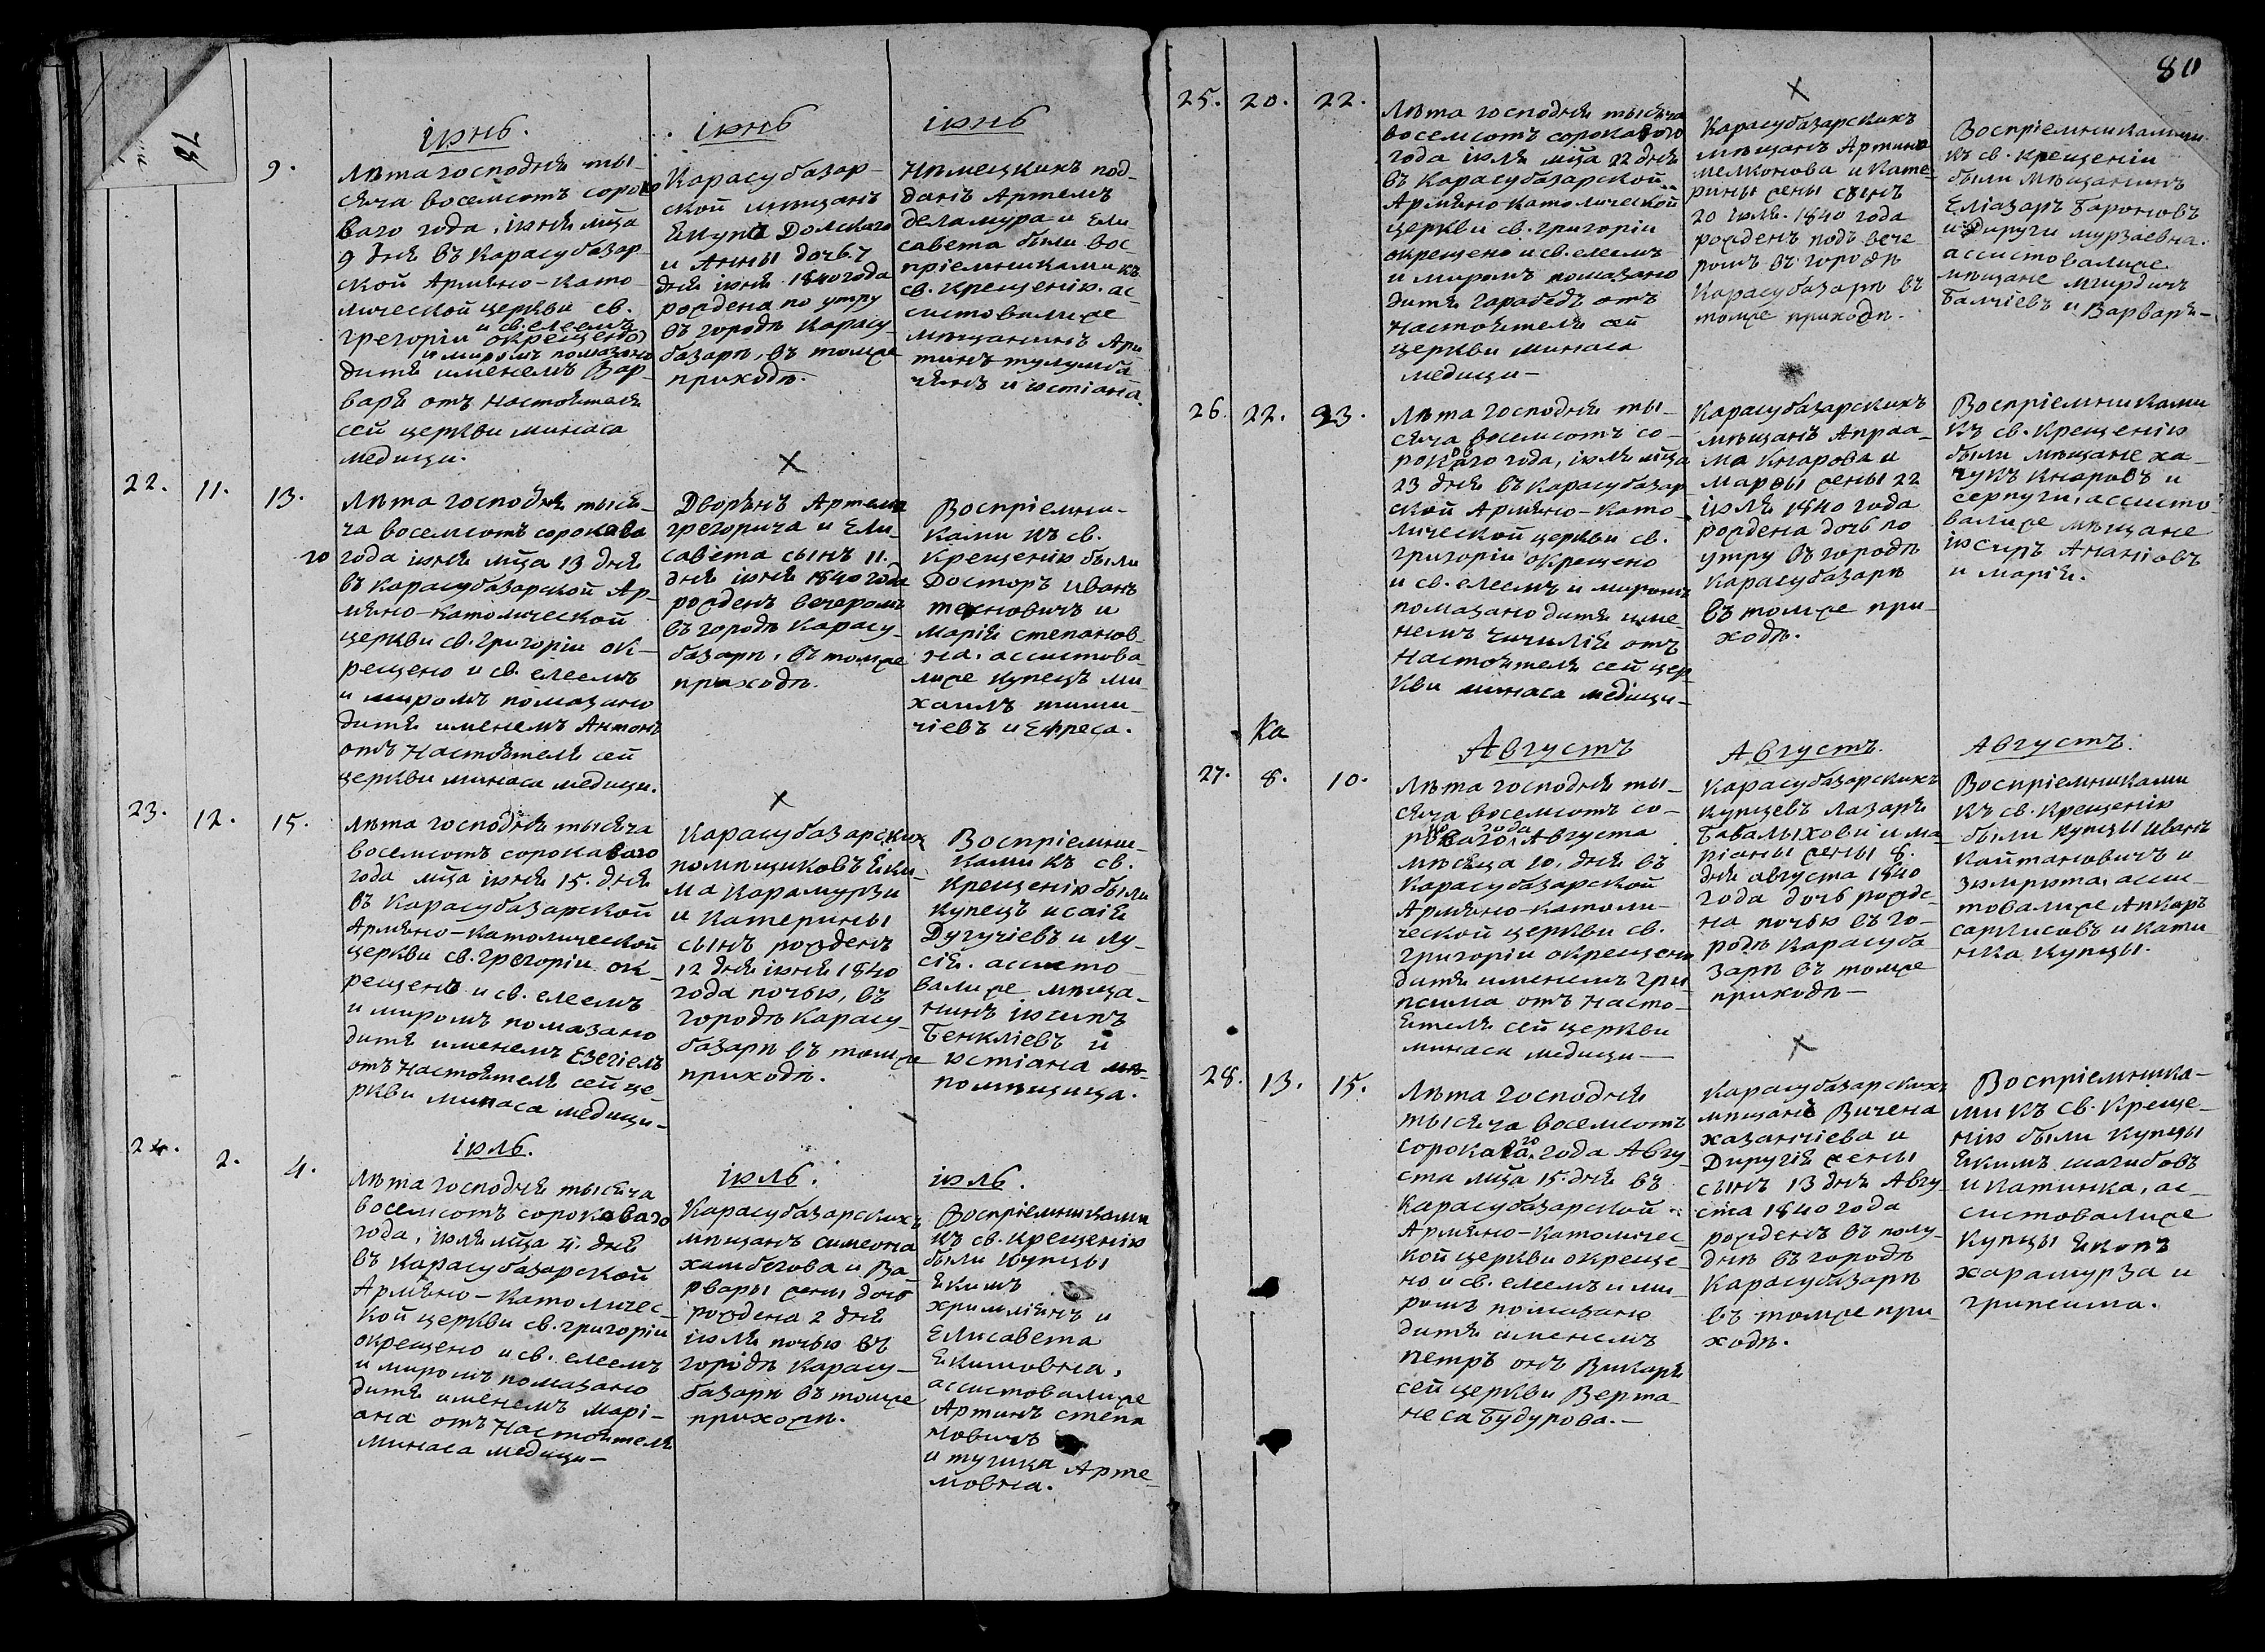 80
78
іюнь.
іюнь
іюнь
9.
Лѣта господня ты-
сяча восемсотъ сороко
ваго года, іюня мца
9 дня въ Карасубазар-
ской Армяно-Като-
лической церкви св.
Грегоріи окрещено
и св. елеемъ
и миромъ помазано
дитя именемъ Вар-
варя отъ настоятеля
сей церкви минаса
медици.
Карасубазар-
ской мѣщанъ
Екупа Долскаго
и Анны дочь 7
дня іюня 1840 года
рождена по утру
въ городѣ Карасу
базарѣ, въ томже
приходѣ.
Нѣмецкихъ под-
данъ Артемъ
деламура и Ели
савета были вос
пріемниками къ
св. Крещенію. ас
систовалисе
мѣщанинъ Ари
тинъ тулумба
чянъ и юстіана.
22.
11.
13.
Лѣта господня тыся-
ча восемсотъ сорокова
го года іюня мца 13 дня
въ Карасубазарской Ар-
мяно-Католической
церкви св. Григоріи ок-
рещено и св. елеемъ
и миромъ помазано
дитя именемъ Антонъ
отъ настоятеля сей
церкви минаса медици.
Х
Дворянъ Артема
грегорича и Ели-
савета сынъ 11.
дня іюня 1840 года
рожденъ вечеромъ
въ городѣ Карасу-
базарѣ, въ томже
приходѣ.
Воспріемни-
ками къ св.
Крещенію были
Досторъ Иванъ
техновичъ и
Марія степанов-
на. ассистова
лисе купецъ ми-
хаилъ тими-
чіевъ и Ефреса.
23.
12.
15.
Лѣта господня тысяча
восемсотъ сороковаго
года мца іюня 15. дня
въ Карасубазарской
Армяно-Католической
церкви св. Грегоріи ок-
рещено и св. елеемъ
и миромъ помазано
дитя именемъ Езегіелъ
отъ настоятеля сей це-
ркви минаса медици-
Х
Карасубазарскихъ
помѣщиковъ Еки-
ма Карамурзи
и Катерины
сынъ рожденъ
12 дня іюня 1840
года ночью, въ
городѣ Карасу-
базарѣ въ томже
приходѣ.
Воспріемни-
ками къ св.
Крещенію были
купецъ исаія
Дугучіевъ и Лу-
сія. ассисто-
валисе мѣща-
нинъ іосипъ
Бенкліевъ и
юстіана
помѣщица.
24.
2.
4.
іюль.
Лѣта господня тысяча
восемсотъ сороковаго
года, іюля мца 4. дня
въ Карасубазарской
Армяно-Католичес-
кой церкви св. Григоріи
окрещено и св. елеемъ
и миромъ помазано
дитя именемъ Марі-
ана отъ настоятеля
минаса медици-
іюль.
Карасубазарскихъ
мѣщанъ симеона
хамбегова и Ва-
рвары жены дочь
рождена 2 дня
іюля ночью въ
городѣ Карасу-
базарѣ въ томже
приходѣ.
іюль.
Воспріемниками
къ св. Крещенію
были купцы
Екимъ
хримлянъ и
Елисавета
Екимовна,
ассистовалисе
Артинъ степа
новичъ
и тугица Арте-
мовна.
25.
20.
22.
Лѣта господня тысяча
восемсотъ сороковаго
года іюля мца 22 дня
въ Карасубазарской
Армяно-Католической
церкви св. Григоріи
окрещено и св. елеемъ
и миромъ помазано
дитя гарабедъ отъ
настоятеля сей
церкви минаса
медици-
Х
Карасубазарскихъ
мѣщанъ Артина
мелконова и Кате-
рины жены сынъ
20 іюля. 1840 года
рожденъ подъ вече-
ромъ въ городѣ
Карасубазарѣ въ
томже приходѣ.
Воспріемниками
къ св. Крещеніи
были мѣщанинъ
Еліазаръ Бароновъ
и Дируги мурзаевна.
ассистовалисе
мѣщане мгирдичъ
Балчіевъ и Варваря-
26.
22.
23.
Лѣта господня ты-
сяча восемсотъ со-
роковаго года, іюля мца
23 дня въ Карасубазар
ской Армяно-Като-
лической церкви св.
Григоріи окрещено
и св. елеемъ и миромъ
помазано дитя име-
немъ Чичилія отъ
настоятеля сей цер
кви минаса медици-
Карасубазарскихъ
мѣщанъ Апраа-
ма Кнарова и
Марѳы жены 22
іюля 1840 года
рождена дочь по
утру въ городѣ
Карасубазарѣ
въ томже при-
ходѣ.
Воспріемниками
къ св. Крещенію
были мѣщане ха-
чукъ Кнаровъ и
серпуги, ассисто-
валисе мѣщане
іосифъ Ананіовъ
и марія.
Ка
Августъ
Августъ.
Августъ.
27.
8.
10.
Лѣта господня ты-
сяча восемсотъ со-
роковаго года Августа
мѣсяца 10. дня въ
Карасубазарской
Армяно-Католи-
ческой церкви св.
Григоріи окрещено
дитя именемъ гри
псима отъ насто-
ятеля сей церкви
минаса медици-
Карасубазарскихъ
купцевъ лазаря
Бабалыхови и ма
ріаны жены 8.
дня августа 1840
года дочь рожде-
на ночью въ го-
родѣ Карасуба
зарѣ въ томже
приходѣ-
Воспріемниками
къ св. Крещенію
были купцы Иванъ
Кайтановичъ и
зюмрюта, ассис-
товалисе Апкаръ
саркисовъ и Кати
нка купцы.
28.
13.
15.
Лѣта господня
тысяча восемсотъ
сороковаго года Авгу-
ста мца 15. дня въ
Карасубазарской
Армяно-Католичес-
кой церкви окреще-
но и св. елеемъ и ми-
ромъ помазано
дитя именемъ
петръ отъ Викаря
сей церкви Верта-
неса Будурова.-
Х
Карасубазарскихъ
мѣщанъ Вичена
хазанчіева и
Диругія жены
сынъ 13 дня Авгу-
ста 1840 года
рожденъ въ полу-
днѣ въ городѣ
Карасубазарѣ
въ томже при-
ходѣ.
Воспріемника-
ми къ св. Креще-
нію были купцы
Екимъ шагибовъ
и Катинка, ас-
систовалисе
купцы Екопъ
харамурза и
грипсима.